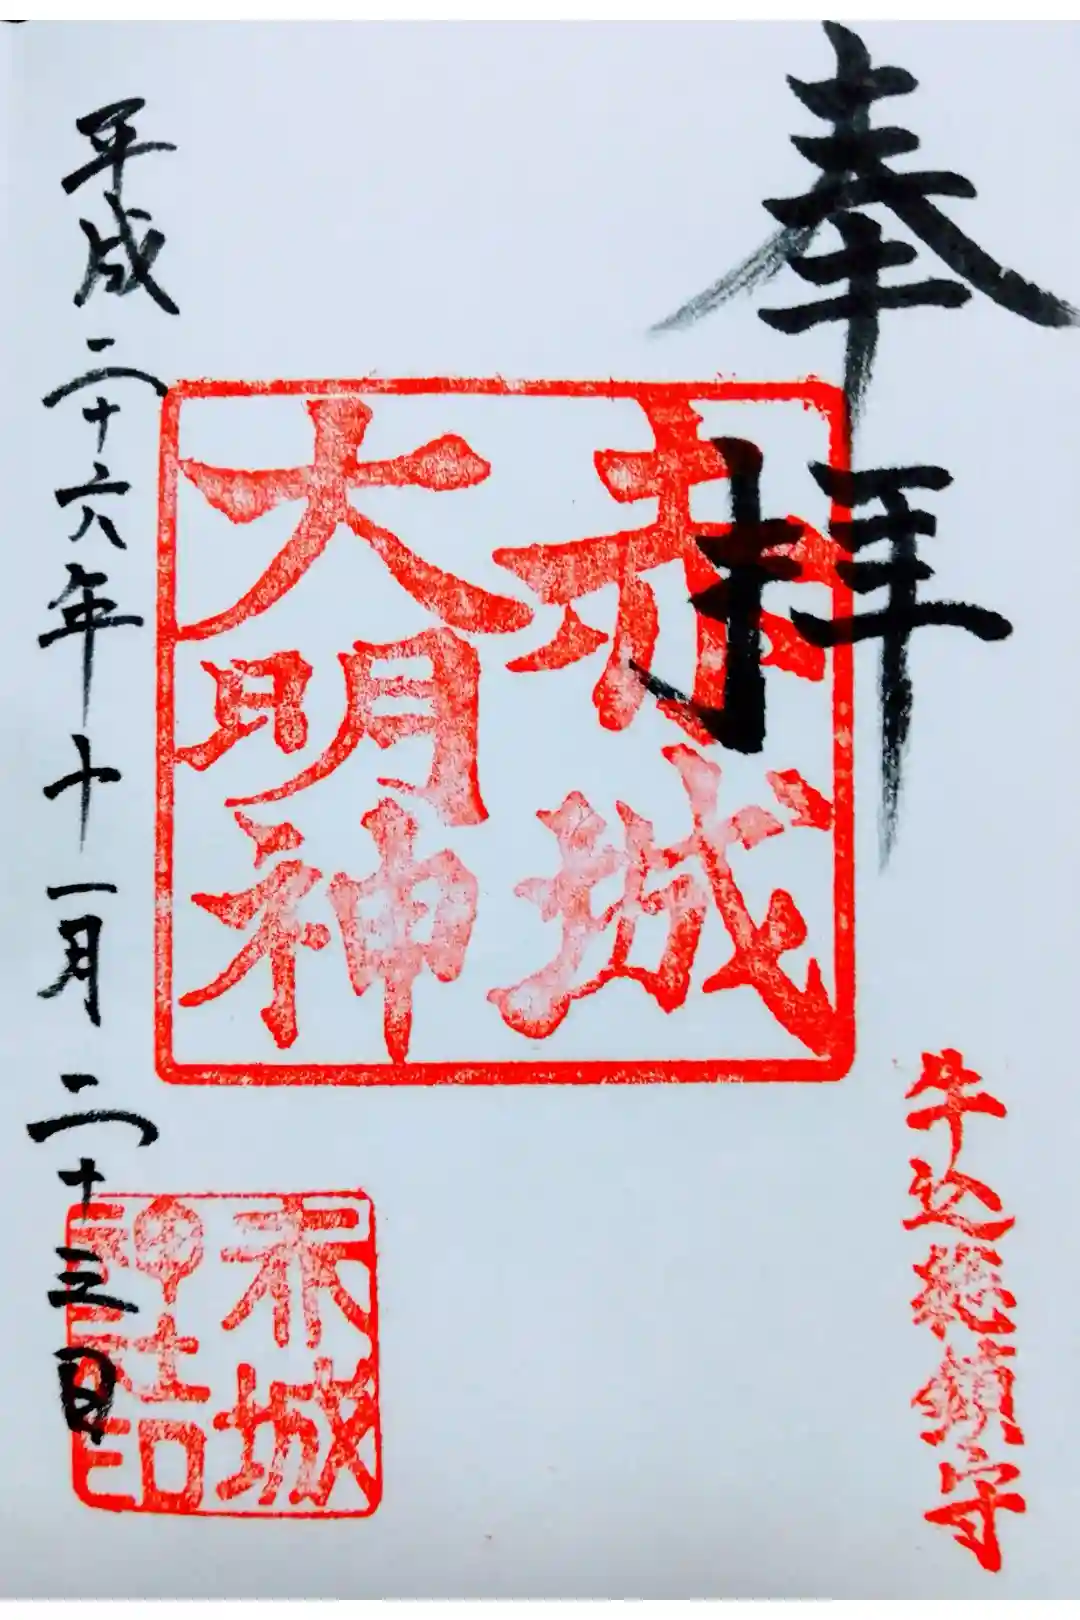 奉拝
牛込総鎮守
赤城
大明神
赤城
神社印
平成二十六年十一月二十三日